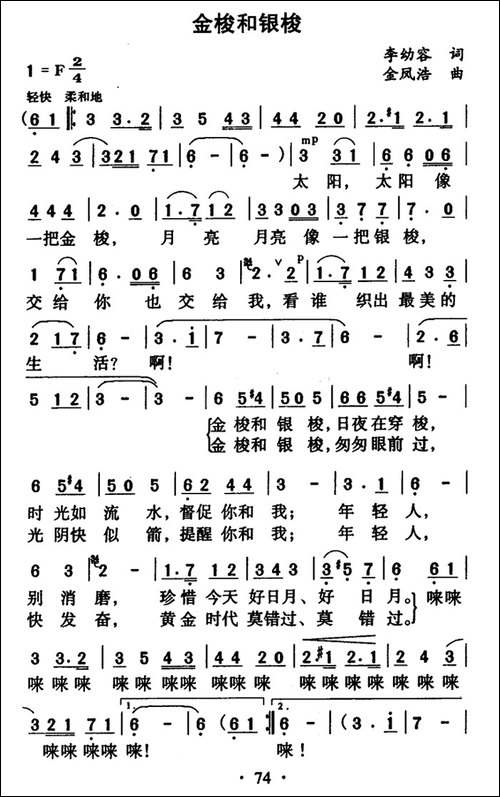 金梭和银梭
李幼容 词
1=F 2/4
金凤浩 曲
轻快 柔和地
(6 1|:3 3·2|3 5 4 3|4 4 2 0|2·#1 2·1|
2 4 3|3 2 1 7 1|6 -|6 -)|3 3 1|6 6 0 6|
mp
太阳, 太阳像
4 4 4|2·0|1·7 1 2|3 3 0 3|3 7 7|7·0|
一把金梭, 月亮 月亮像一把银梭,
1 7 1|6·0 6|6 3|2·2|1·7|2 2 0|4 3 3|
p
交给你也交给我,看谁 织出最美的
2 1 7|6 -|3·i|7 -|3·7|6 -|2·6|
生 活? 啊! 啊!
5 1 2|3 -|3 -|6 5#4|5 0 5|6 6 5#4|5 -|
金梭和银梭,日夜在穿梭,
金梭和银梭,匆匆眼前过,
6 5#4|5 0 5|6 2 4 4|3 -|3·1|6 -|
时光如流水,督促你和我; 年轻人,
光阴快似箭,提醒你和我; 年轻人,
6 3|2 -|1·7 1 2|3 4 3|3#5 7|6 6 1|
别消磨, 珍惜今天 好日月、好 日 月。 唻唻
快发奋, 黄金时代 莫错过、莫 错 过。
3 3·2|3 5 4 3|4 4 2 0|2#1 2·1|2 4 3|
唻 唻唻 唻唻唻唻 唻唻唻 唻唻唻唻 唻唻唻
3 2 1 7 1|1. 6 -|6 (6 1:|2. 6 -|(3·i|7 -|6 -)|
唻唻唻唻 唻! 唻!
· 74 ·